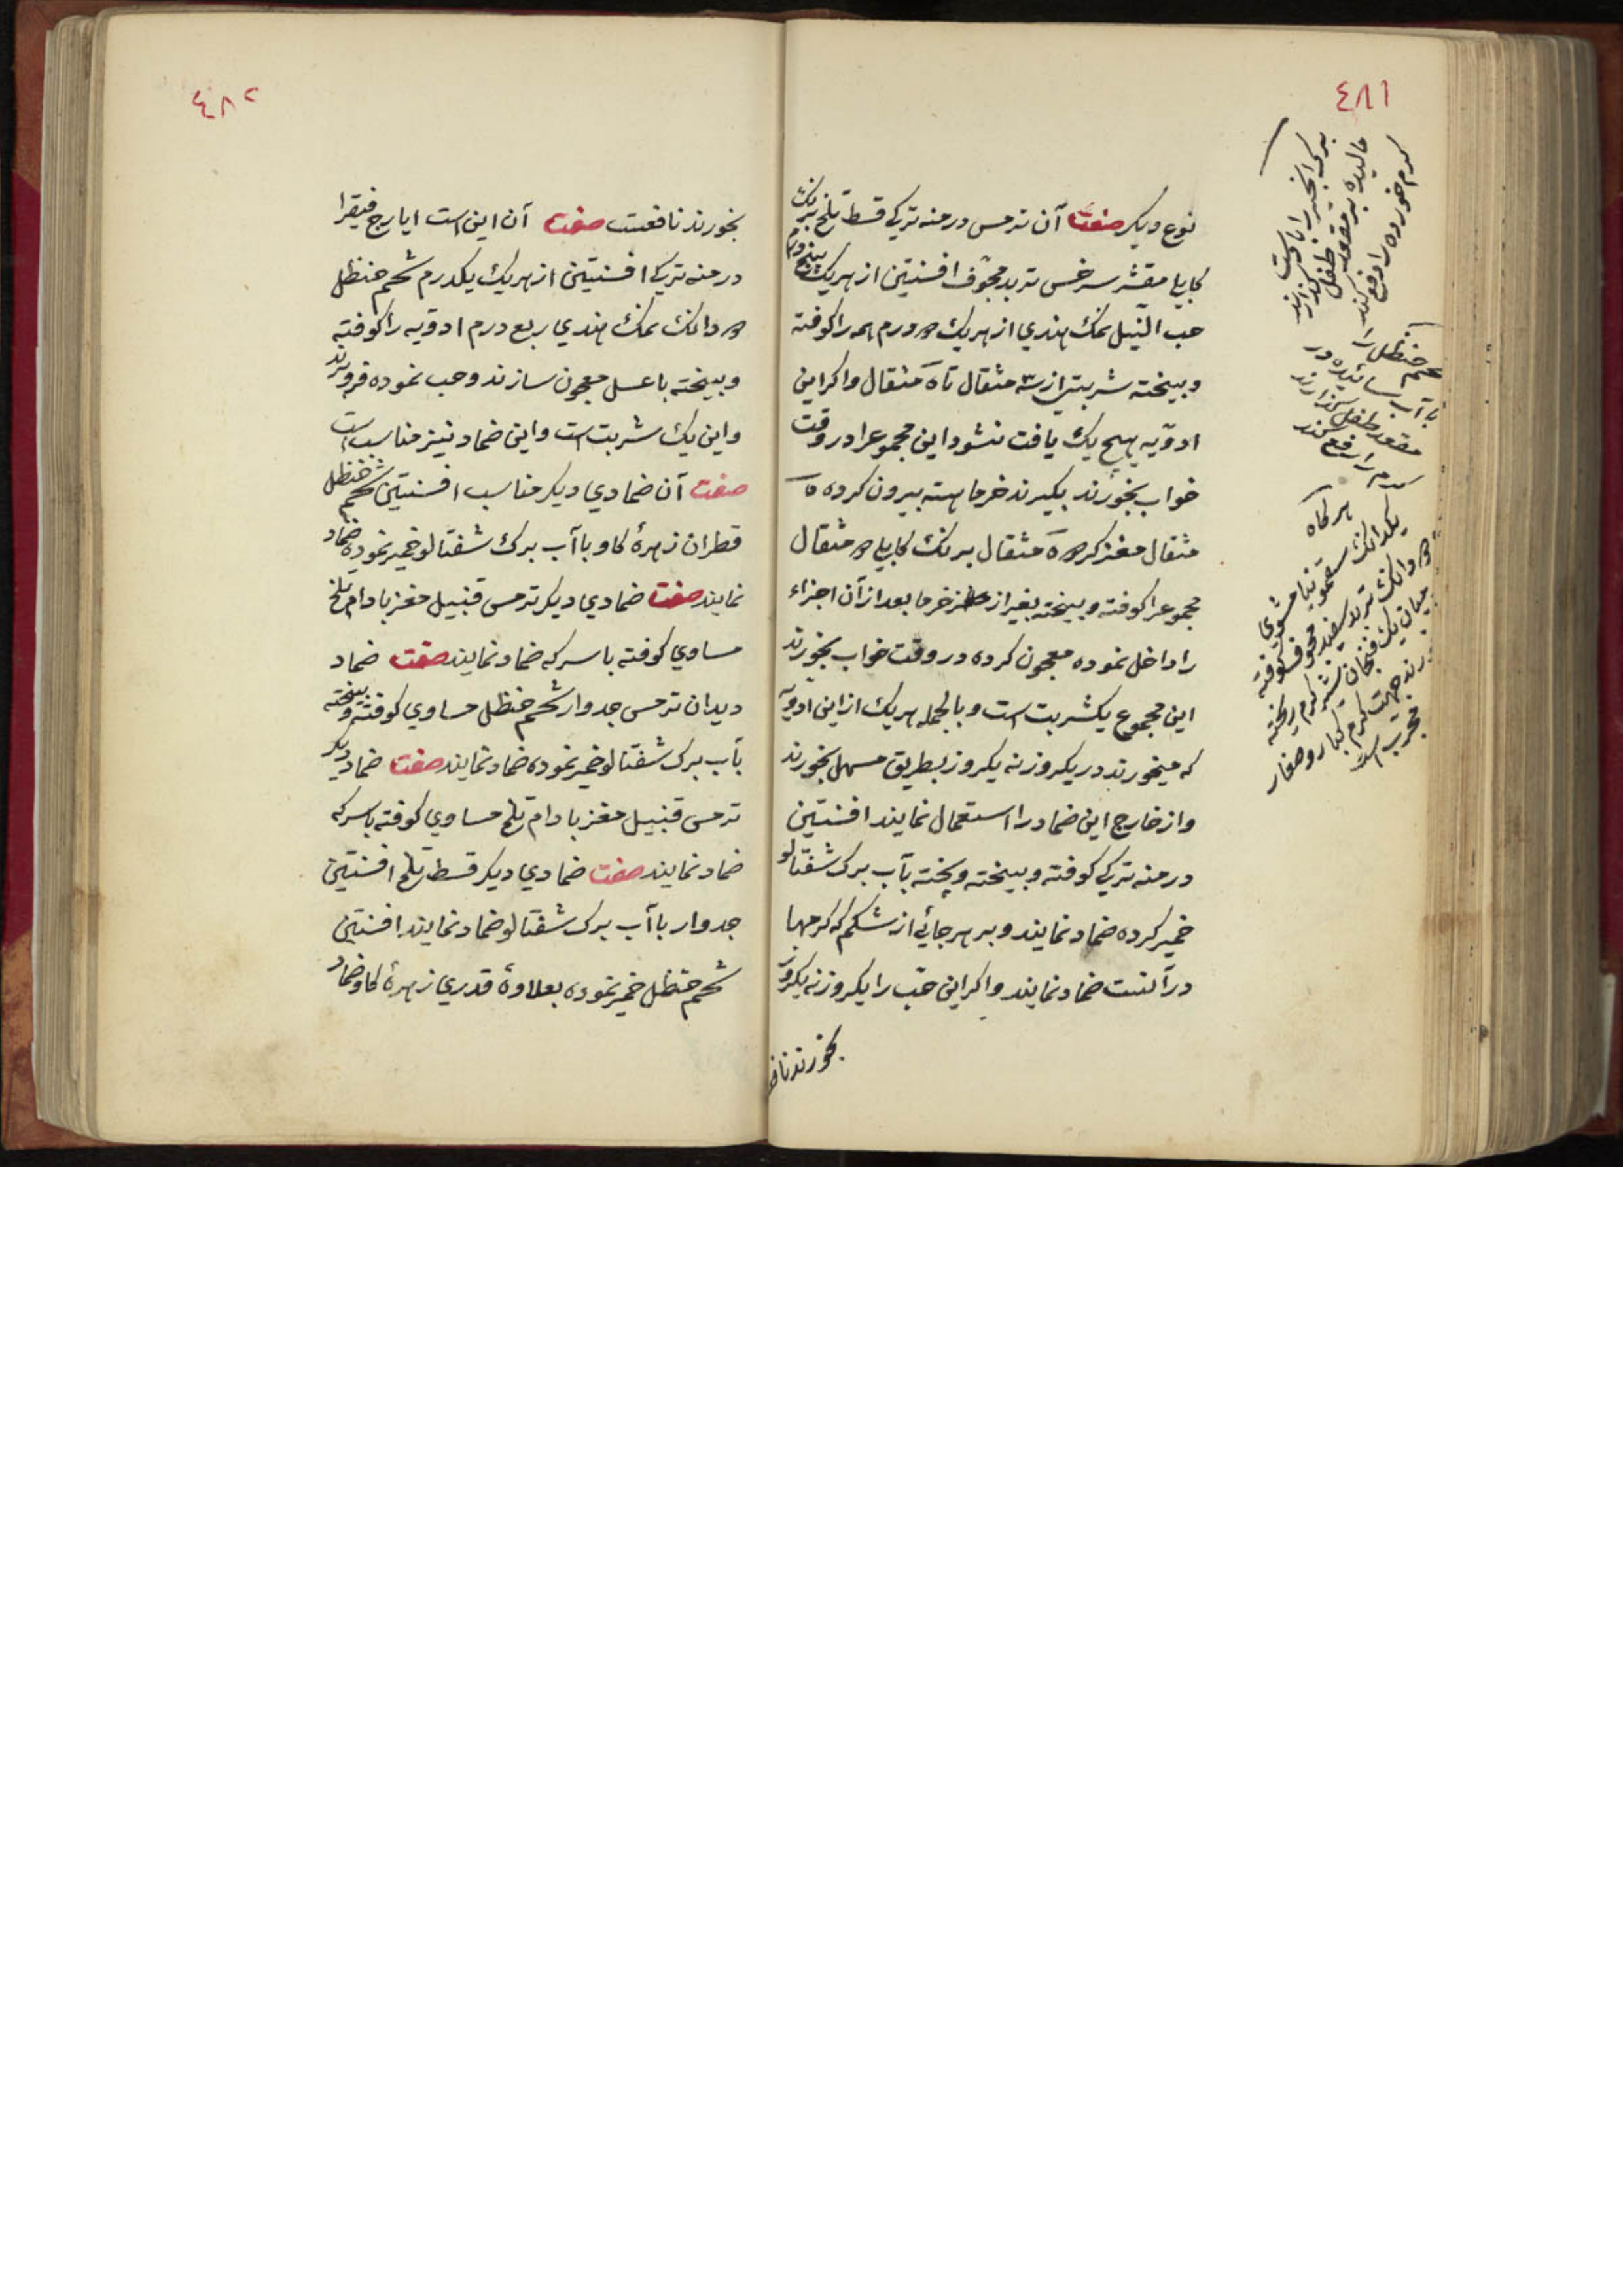 ٤٨١
نوع دیکر صفت آن ترمس درمنه ترکی قسط تلخ برنک
کابلی مقشر سرخس تربد مجوف افسنتین از هریک پنجدرم
حب النیل نمک هندی از هریک دو درم همه را کوفته
وبیخته شربتی از سه مثقال تا ۵ مثقال واکر این
ادویه هیچ یک یافت نشود این مجموعرا در وقت
خواب بخورند بکیرند خرما هسته بیرون کرده ۵
مثقال مغز کردو ۵ مثقال برنک کابلی دو مثقال
مجموعرا کوفته وبیخته بغیر از خرما بعد از آن اجزاء
را داخل نموده معجون کرده در وقت خواب بخورند
این مجموع یکشربت است وبالجمله هریک از این ادویه
که میخورند در یکروز نه یکروز بطریق مسهل بخورند
واز خارج این ضماد را استعمال نمایند افسنتین
درمنه ترکی کوفته وبیخته وپخته بآب برک شفتالو
خمیر کرده ضماد نمایند وبر هر جائی از شکم که کرمها
در آنست ضماد نمایند واکر این حب را یکروز نه یکروز
بخورند نافع
برک انجیر را بادست
مالیده بر مقعد طفل کذارند
کرم خورده را دفع کند
شحم حنظل را
با آب سائیده در
مقعد طفل کذارند
کرم را رفع کند
هرکاه
یکدانک سقمونیا مشوی
دو دانک تربد سفید مجوف کوفته
میان یک فنجان شیر کرم ریخته
خورند جهت کرم کبار وصغار
مجرب است
٤٨٢
بخورند نافعست صفت آن این است ایارج فیقرا
درمنه ترکی افسنتین از هریک یکدرم شحم حنظل
دو دانک نمک هندی ربع درم ادویه را کوفته
وبیخته با عسل معجون سازند وحب نموده فرو برند
واین یک شربت است واین ضماد نیز مناسب است
صفت آن ضمادی دیکر مناسب افسنتین شحم حنظل
قطران زهرهٔ کاو با آب برک شفتالو خمیر نموده ضماد
نمایند صفت ضمادی دیکر ترمس قنبیل مغز بادام تلخ
مساوی کوفته با سرکه ضماد نمایند صفت ضماد
دیدان ترمس جدوار شحم حنظل مساوی کوفته وبیخته
بآب برک شفتالو خمیر نموده ضماد نمایند صفت ضماد دیکر
ترمس قنبیل مغز بادام تلخ مساوی کوفته با سرکه
ضماد نمایند صفت ضمادی دیکر قسط تلخ افسنتین
جدوار با آب برک شفتالو ضماد نمایند افسنتین
شحم حنظل خمیر نموده بعلاوهٔ قدری زهرهٔ کاو ضماد